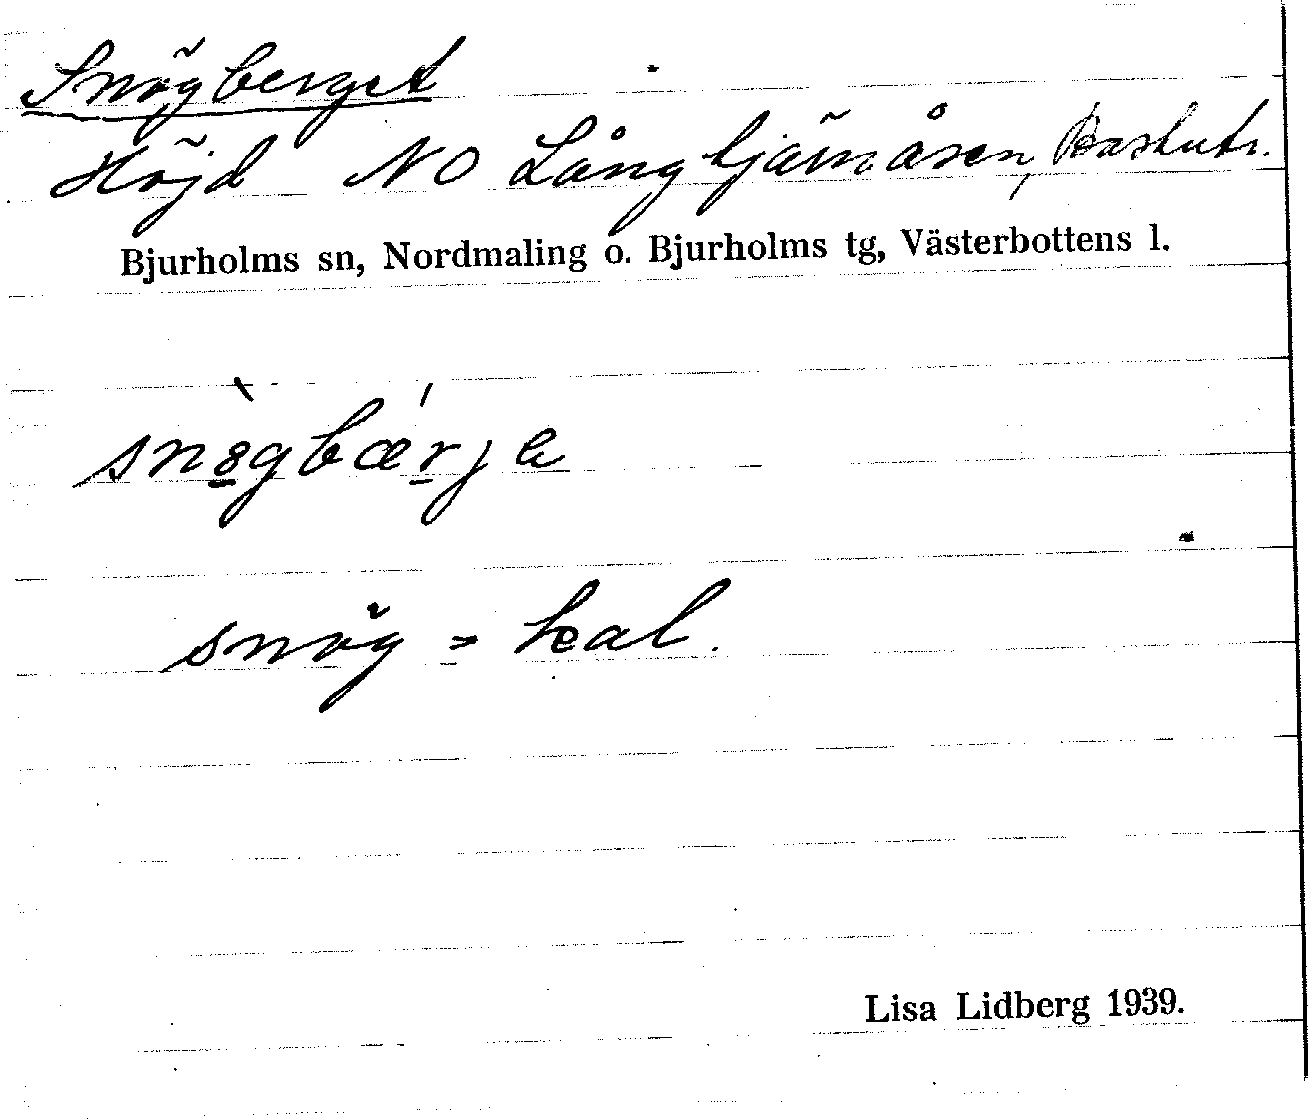 Snögberget
Höjd NO Långtjärnåsen, Bastutr.
Bjurholms sn, Nordmaling o. Bjurholms tg, Västerbottens l.
snö̀gbǽrja
snög = kal.
Lisa Lidberg 1939.